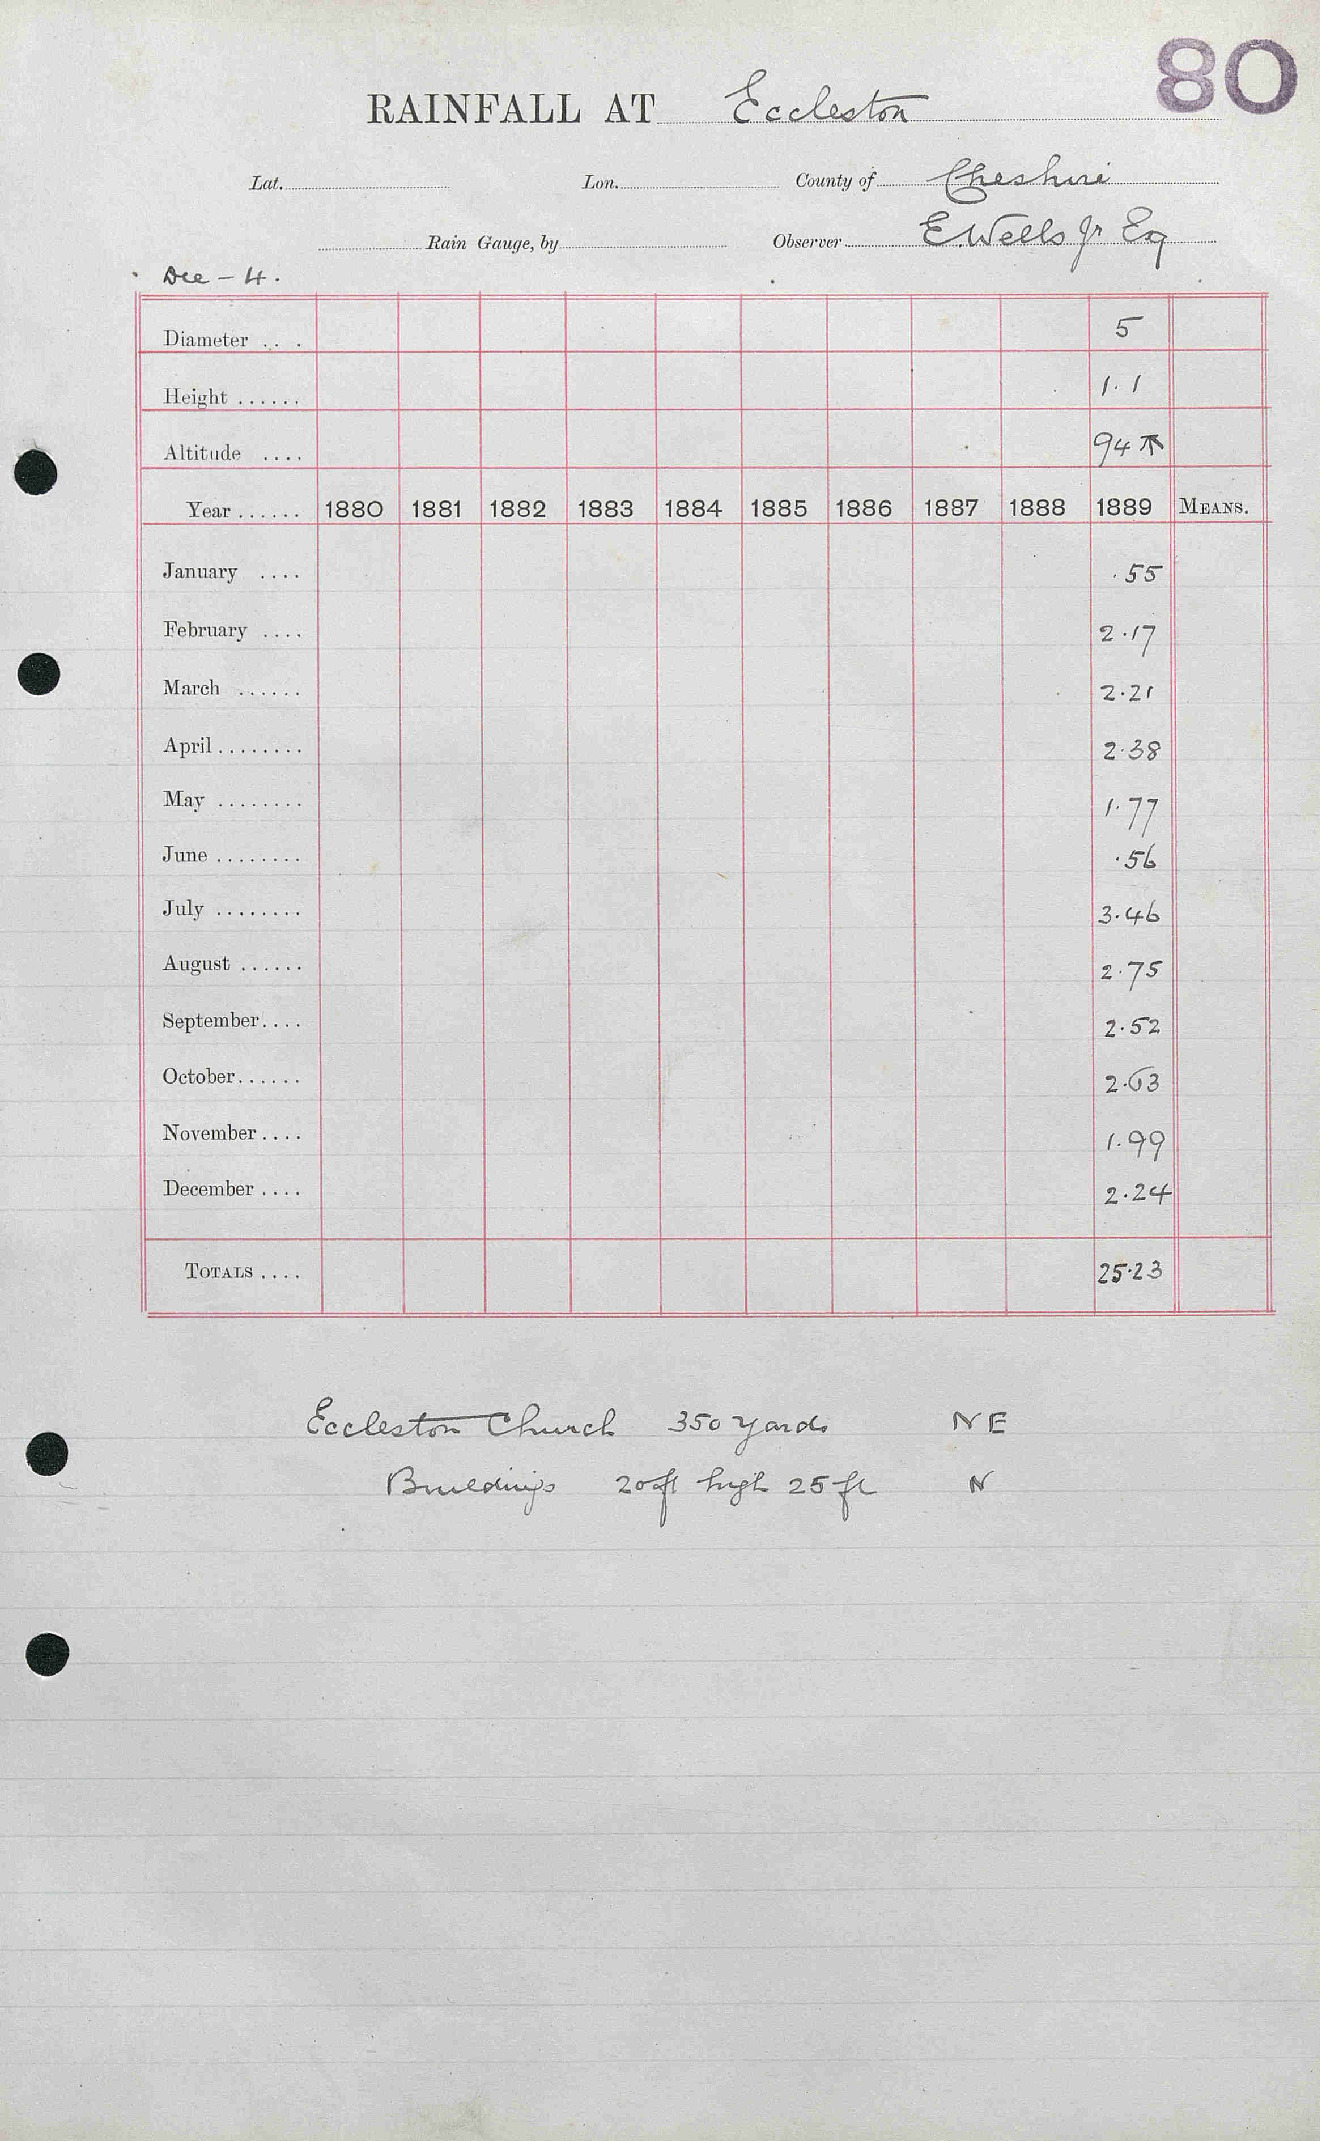 80
RAINFALL AT Eccleston
Lat. Lon. County of Cheshire
Rain Gauge, by Observer E. Wells Jr Esq
Dee - 4.
Diameter .. . 5
Height ...... 1.1
Altitude .... 94 ⚻
Year ...... 1880 1881 1882 1883 1884 1885 1886 1887 1888 1889 MEANS.
January .... .55
February .... 2.17
March ...... 2.21
April ........ 2.38
May ........ 1.77
June ........ .56
July ........ 3.46
August ...... 2.75
September .... 2.52
October ...... 2.63
November .... 1.99
December .... 2.24
TOTALS .... 25.23
Eccleston Church 350 yards NE
Buildings 20ft high 25 ft N